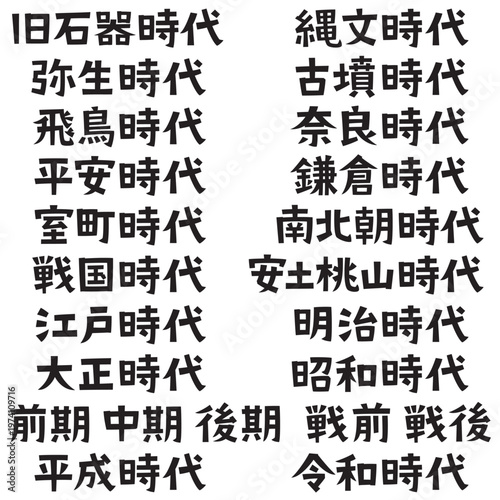 旧石器時代 縄文時代
弥生時代 古墳時代
飛鳥時代 奈良時代
平安時代 鎌倉時代
室町時代 南北朝時代
戦国時代 安土桃山時代
江戸時代 明治時代
大正時代 昭和時代
前期 中期 後期 戦前 戦後
平成時代 令和時代
Adobe Stock | #1974109716